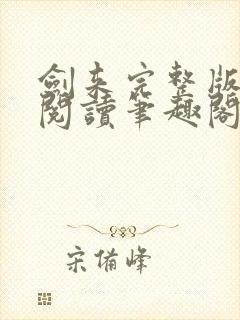 劍來完整版
閱讀筆趣閣
宋備峰